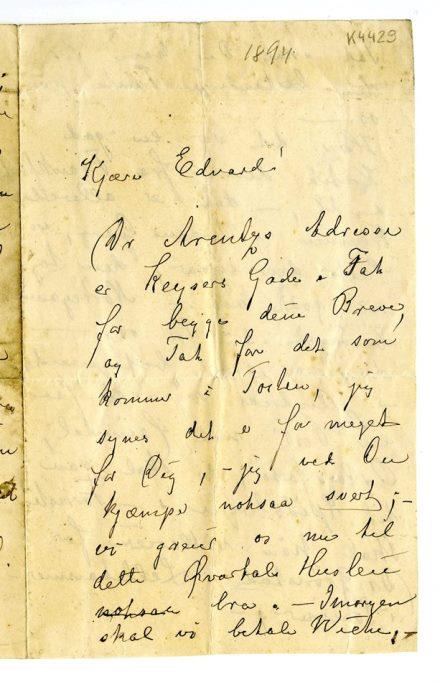 K4429
1894.
Kjære Edvard!
Dr Arentz's Adresse
er Keysers Gade. Tak
for begge dine Breve,
og Tak for det som
kommer i Posten, jeg
synes det er for meget
for Dig, – jeg ved Du
kjæmper noksaa svert; –
vi greier os nu til
dette Qvartals Husleie
noksaa bra. – Imorgen
skal vi betale